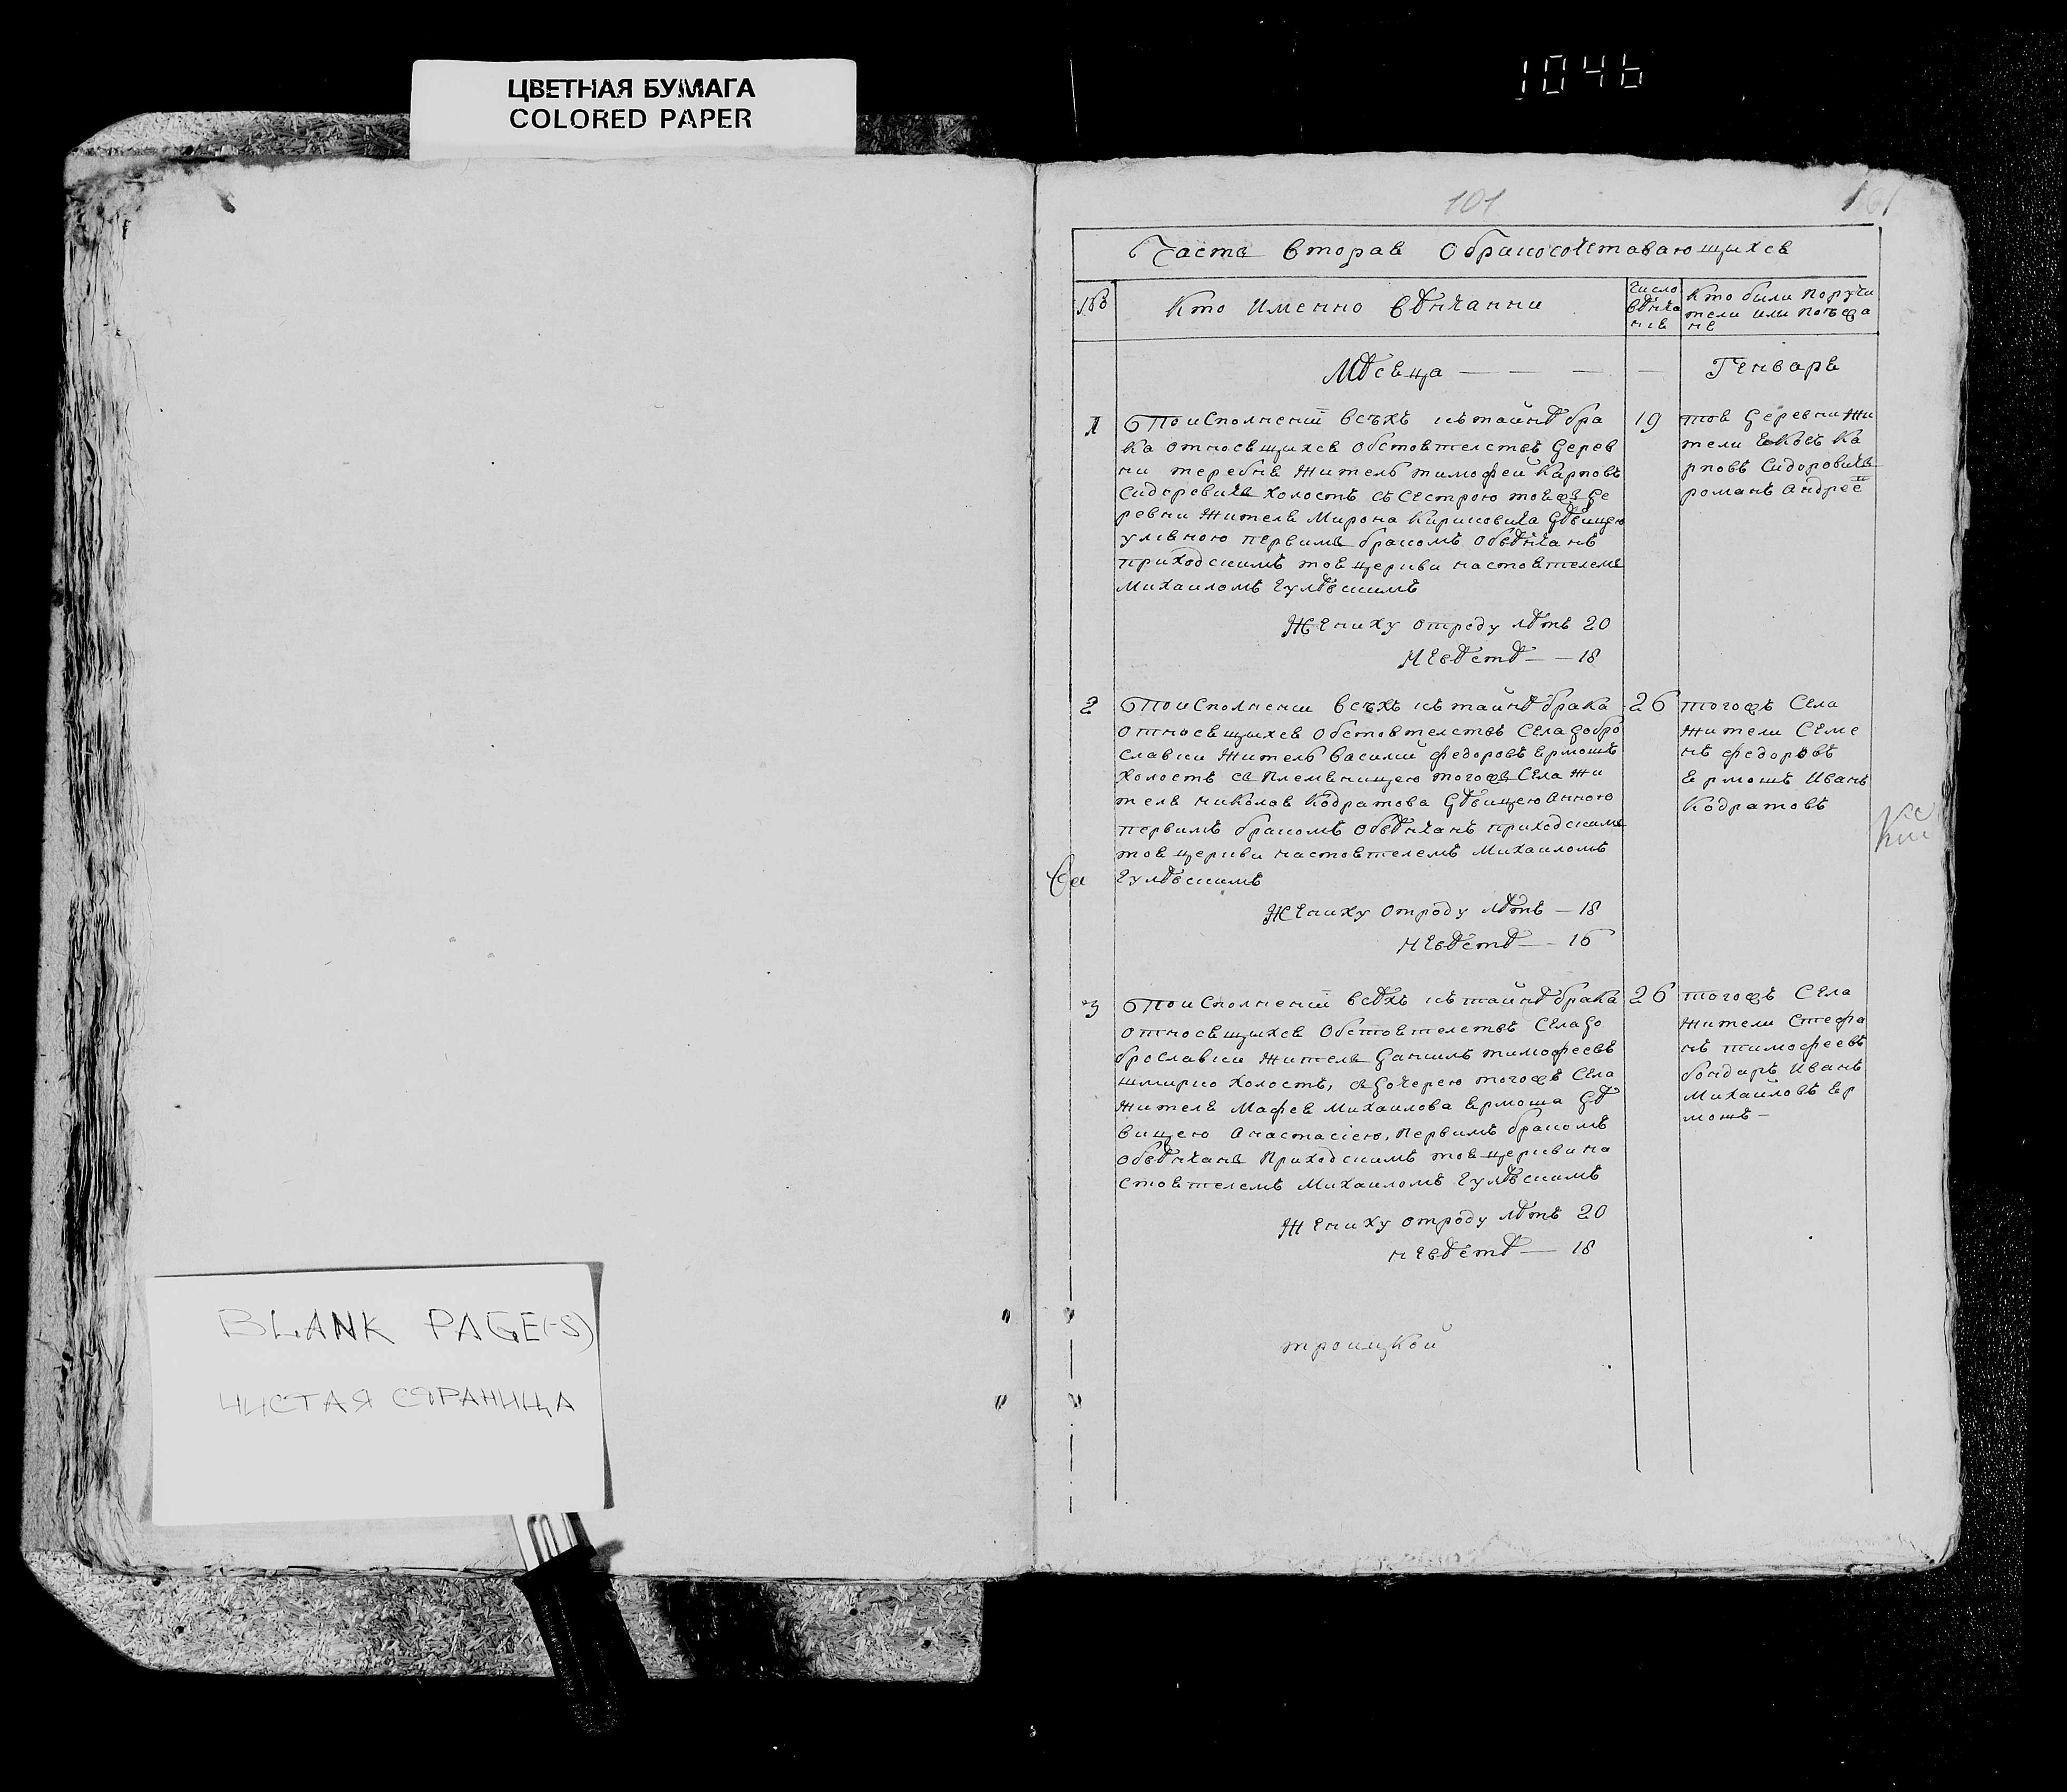 ЦВЕТНАЯ БУМАГА
COLORED PAPER
1046
BLANK PAGE(-S)
ЧИСТАЯ СТРАНИЦА
101
101
Часть вторая о бракосочетавающихся
№
Кто именно вѣнчанни
Число вѣнча нія
Кто были поручи тели или поѣзжа не
Мѣсяца — — — —
Генваря
1
По исполненіи всѣхъ къ тайнѣ бра
ка относящихся обстоятелствъ дерев
ни теребня житель тимофей Карповъ
Сидоревичь холостъ съ сестрою тояжъ де
ревни жителя Мирона Кириковича дѣвицею
улияною первимъ бракомъ обвѣнчанъ
приходскимъ тоя церкви настоятелемъ
Михаиломъ Гулѣвскимъ
Жениху отроду лѣтъ 20
Невѣстѣ — — 18
19
тоя деревни жи
тели Яковъ Ка
рповъ Сидоровичь
романъ Андрее
2
По исполненіи всѣхъ къ тайнѣ брака
относящихся обстоятелствъ села добро
славки житель Василій федоровъ Ярмошъ
холостъ съ племянницею тогожъ села жи
теля николоя Кодратова дѣвицею Анною
первимъ бракомъ обвѣнчанъ приходскимъ
тоя церкви настоятелемъ Михаиломъ
Гулѣвскимъ
Жениху отроду лѣтъ — 18
невѣстѣ — 16
26
тогожъ села
жители Семе
нъ федоровъ
Ярмошъ Иванъ
Кодратовъ
3
По исполненіи всѣхъ къ тайнѣ брака
относящихся обстоятелствъ села до
брославки житель Данiилъ тимофеевъ
шмирко холостъ, съ дочерею тогожъ села
жителя Мафея Михаилова Ярмоша дѣ
вицею Анастасіею, первимъ бракомъ
обвѣнчанъ приходскимъ тоя церкви на
стоятелемъ Михаиломъ Гулѣвскимъ
Жениху отроду лѣтъ 20
невѣстѣ — 18
26
тогожъ села
жители Стефа
нъ тимофеевъ
бондаръ Иванъ
Михайловъ Яр
мошъ —
троицкой